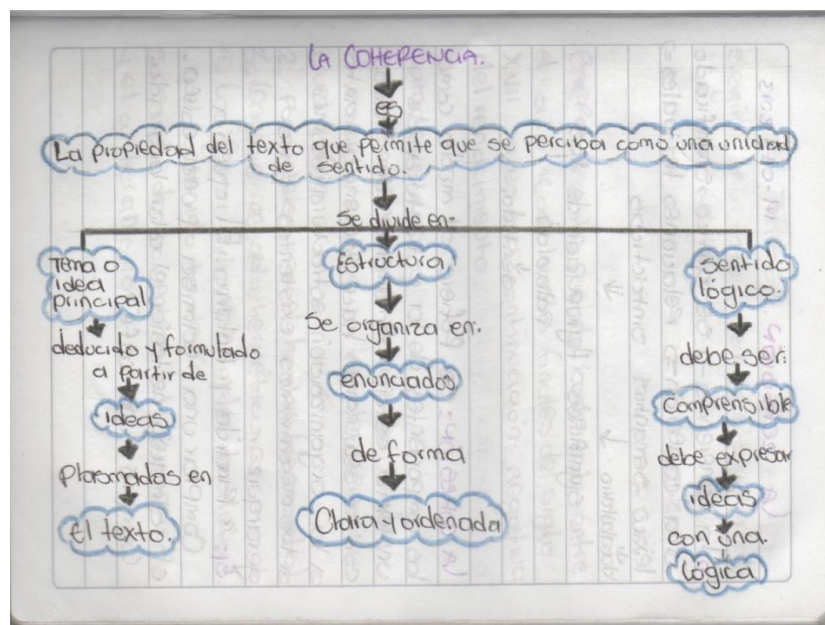 LA COHERENCIA.
es
La propiedad del texto que permite que se perciba como una unidad
de sentido.
Se divide en:
Tema o
idea
principal
deducido y formulado
a partir de
ideas
Plasmadas en
El texto.
Estructura
Se organiza en:
enunciados
de forma
Clara y ordenada
Sentido
lógico.
debe ser:
Comprensible
debe expresar
ideas
con una.
Lógica